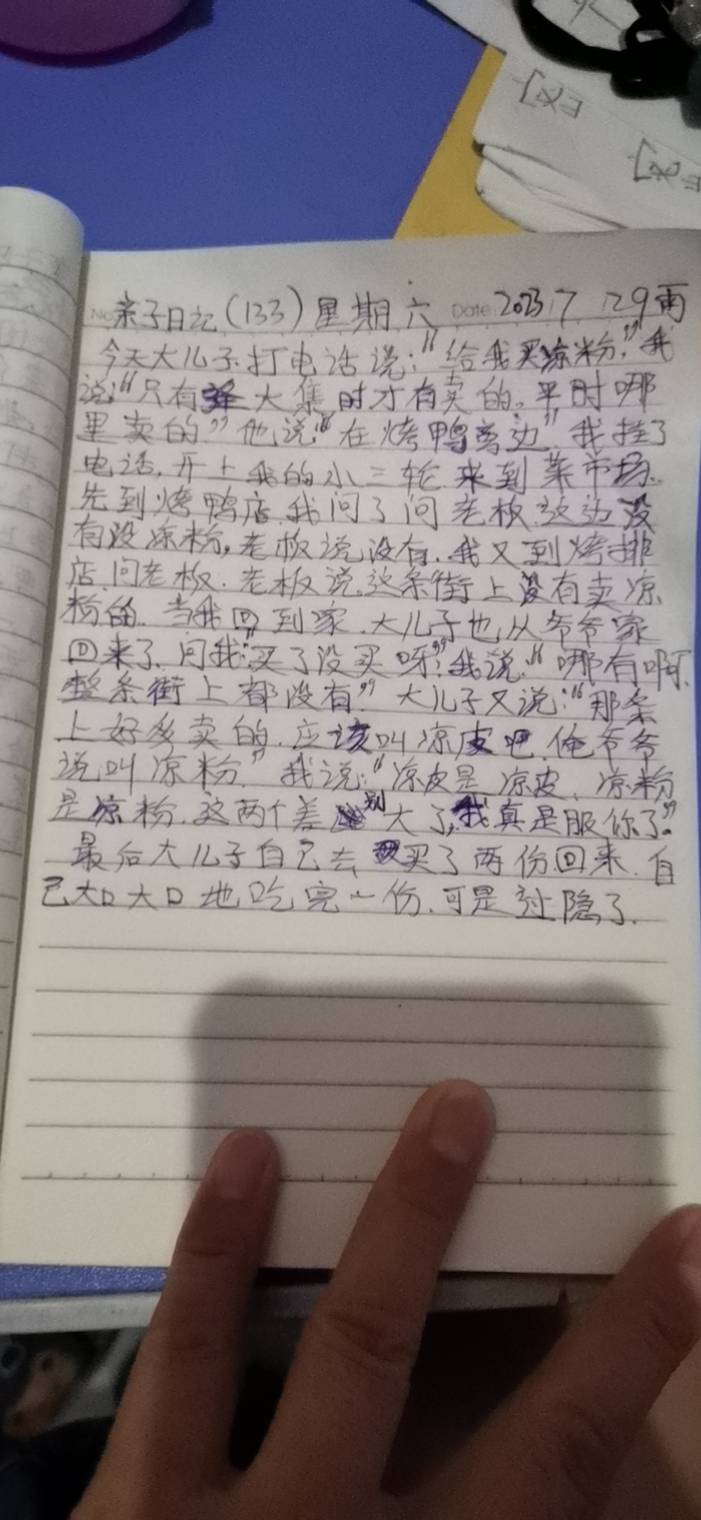 No. 亲子日记(133)星期六 Date: 2023 7 29雨
今天大儿子打电话说:"给我买凉粉,"我
说:"只有大集时才有卖的。平时哪
里卖的"他说:"在烤鸭旁边"我挂了
电话,开上我的小三轮来到菜市场.
先到烤鸭店.我问了问老板这边没
有没凉粉,老板说没有.我又到烤排
店.问老板.老板说这条街上没有卖凉
粉的.当我回到家.大儿子也从爷爷家
回来了.问我:"买了没买呀?"我说:"哪有啊.
整条街上都没有?"大儿子又说:"那条
上好多卖的.应该叫凉皮吧.俺爷爷
说叫凉粉"我说:"凉皮是凉皮、凉粉
是凉粉.这两个差别大了,我真是服你了"。
最后大儿子自己去买了两份回来.自
己大口大口地吃完一份.可是过隐了.